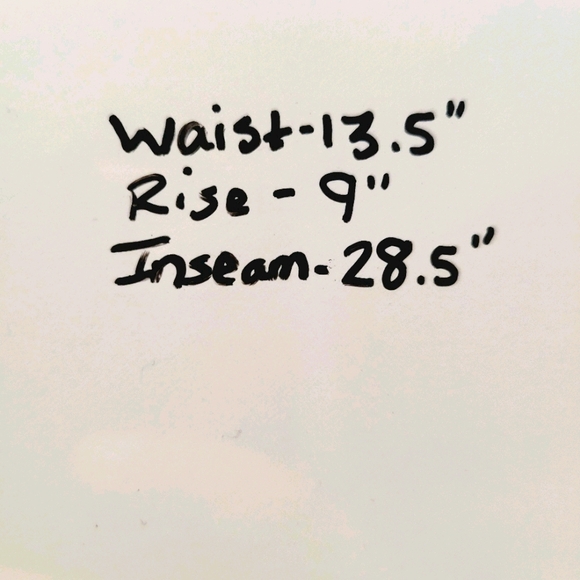 Waist-13.5"
Rise - 9"
Inseam-28.5"